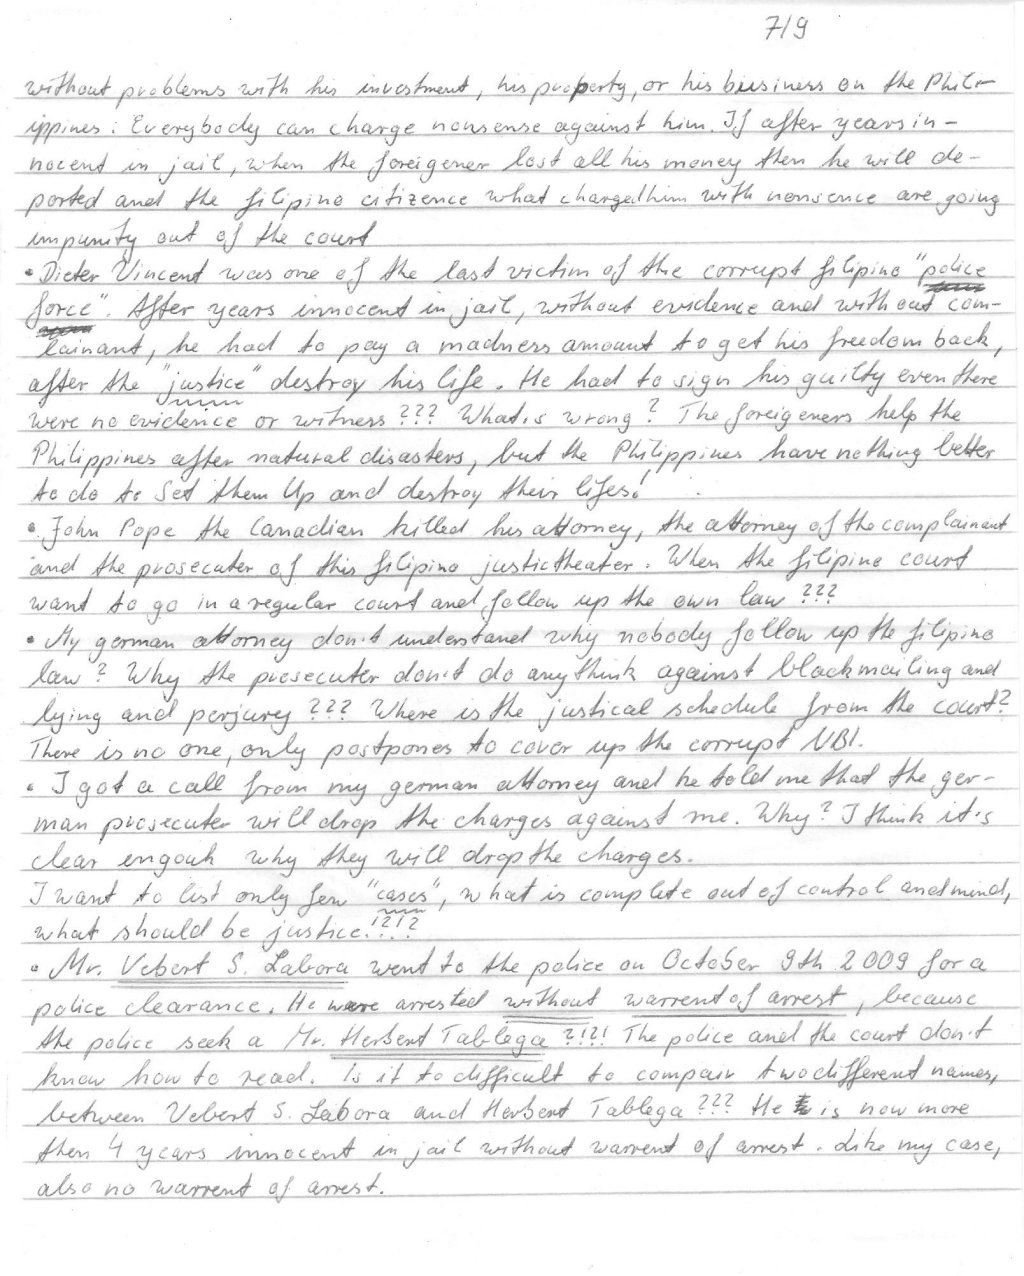 7/9
without problems with his investment, his property, or his business on the Phil-
ippines. Everybody can charge nonsense against him. If after years in-
nocent in jail, when the foreigener lost all his money then he will de-
ported and the filipino citizence what charged him with nonsence are going
impunity out of the court
• Dieter Vincent was one of the last victim of the corrupt filipino "police
force". After years innocent in jail, without evidence and without com-
lainant, he had to pay a madness amount to get his freedom back,
after the "justice" destroy his life. He had to sign his guilty even there
were no evidence or witness ??? What's wrong? The foreigeners help the
Philippines after natural disasters, but the Philippines have nothing better
to do to Set them Up and destroy their lifes!
• John Pope the Canadian killed his attorney, the attorney of the complainant
and the prosecuter of this filipino justictheater. When the filipino court
want to go in a regular court and follow up the own law ???
• My german attorney don't understand why nobody follow up the filipino
law? Why the prosecuter don't do any think against blackmailing and
lying and perjury ??? Where is the justical schedule from the court?
There is no one, only postpones to cover up the corrupt NBI.
• I got a call from my german attorney and he told me that the ger-
man prosecuter will drop the charges against me. Why? I think it's
clear engouh why they will drop the charges.
I want to list only few "cases", what is complete out of control and mind,
what should be justice.!?!?
• Mr. Vebert S. Labora went to the police on October 9th 2009 for a
police clearance. He were arrested without warrent of arrest, because
the police seek a Mr. Herbert Tablega ?!?! The police and the court don't
know how to read. Is it to difficult to compair two different names,
between Vebert S. Labora and Herbert Tablega ??? He is now more
then 4 years innocent in jail without warrent of arrest. Like my case,
also no warrent of arrest.